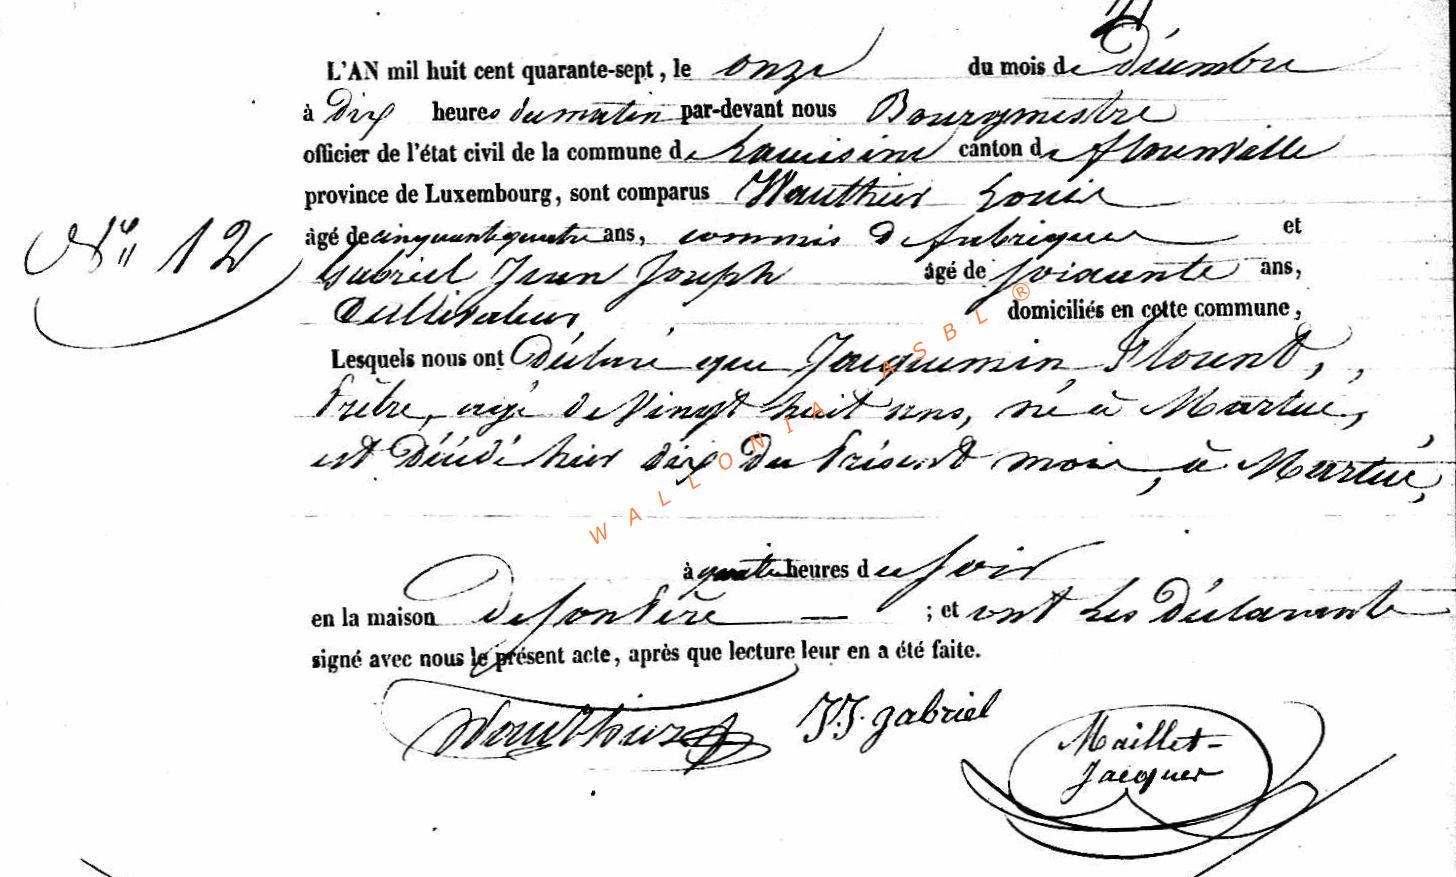 L'AN mil huit cent quarante-sept, le onze du mois de Décembre
à Dix heures du matin par-devant nous Bourgmestre
officier de l'état civil de la commune de Lacuisine canton de florenville
province de Luxembourg, sont comparus Wauthier Louis
Nº 12
âgé de cinquante quatre ans, commis de fabrique et
Gabriel Jean Joseph âgé de soixante ans,
Cultivateur, domiciliés en cette commune,
Lesquels nous ont Déclaré que Jacquemin, Florent,
Prêtre, agé de vingt huit ans, né à Martué,
est Décédé hier dix du Présent mois, à Martué,
à quatre heures du soir
en la maison de son Père — ; et ont les Déclarants
signé avec nous le présent acte, après que lecture leur en a été faite.
Wauthier J.J. gabriel
Maillet-
Jacques
WALLONIA ASBL ®